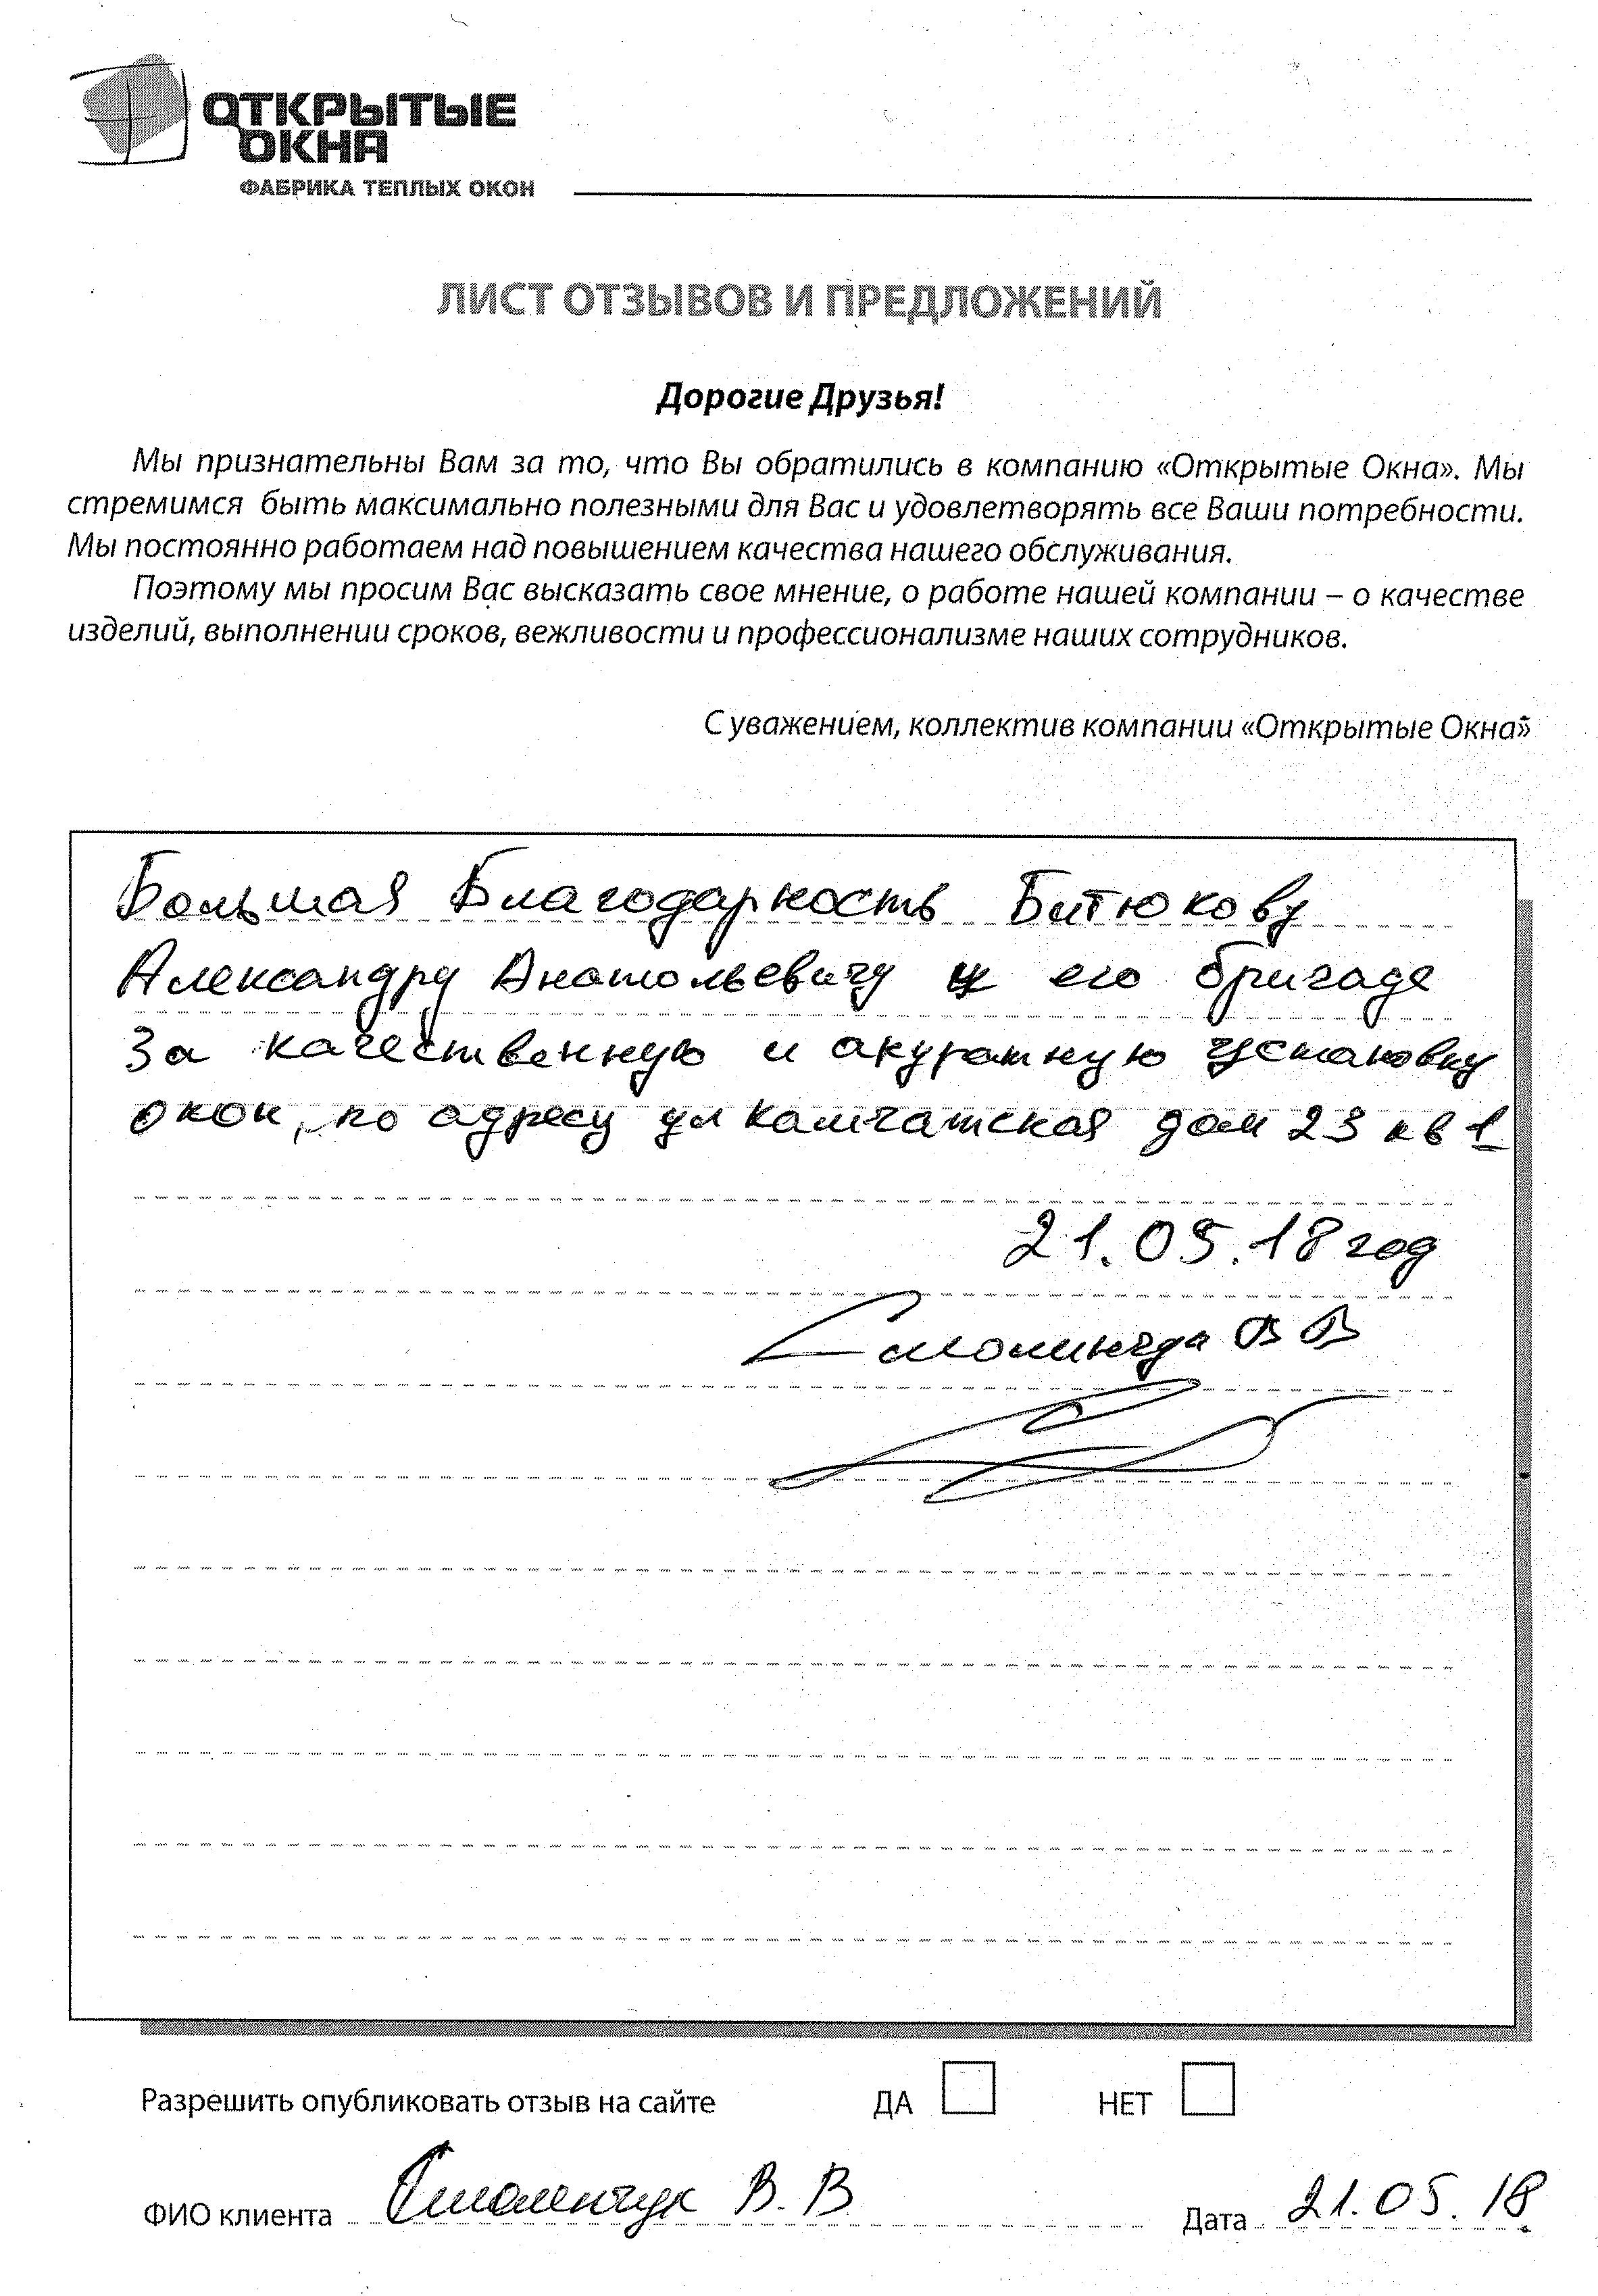 ОТКРЫТЫЕ
ОКНА
ФАБРИКА ТЕПЛЫХ ОКОН
ЛИСТ ОТЗЫВОВ И ПРЕДЛОЖЕНИЙ
Дорогие Друзья!
Мы признательны Вам за то, что Вы обратились в компанию «Открытые Окна». Мы
стремимся быть максимально полезными для Вас и удовлетворять все Ваши потребности.
Мы постоянно работаем над повышением качества нашего обслуживания.
Поэтому мы просим Вас высказать свое мнение, о работе нашей компании – о качестве
изделий, выполнении сроков, вежливости и профессионализме наших сотрудников.
С уважением, коллектив компании «Открытые Окна»
Большая Благодарность Битюкову
Александру Анатольевичу и его бригаде
За качественную и акуратную установку
окон, по адресу ул камчатская дом 23 кв 1
21.05.18 год
В В
Разрешить опубликовать отзыв на сайте ДА НЕТ
ФИО клиента В. В Дата 21.05.18